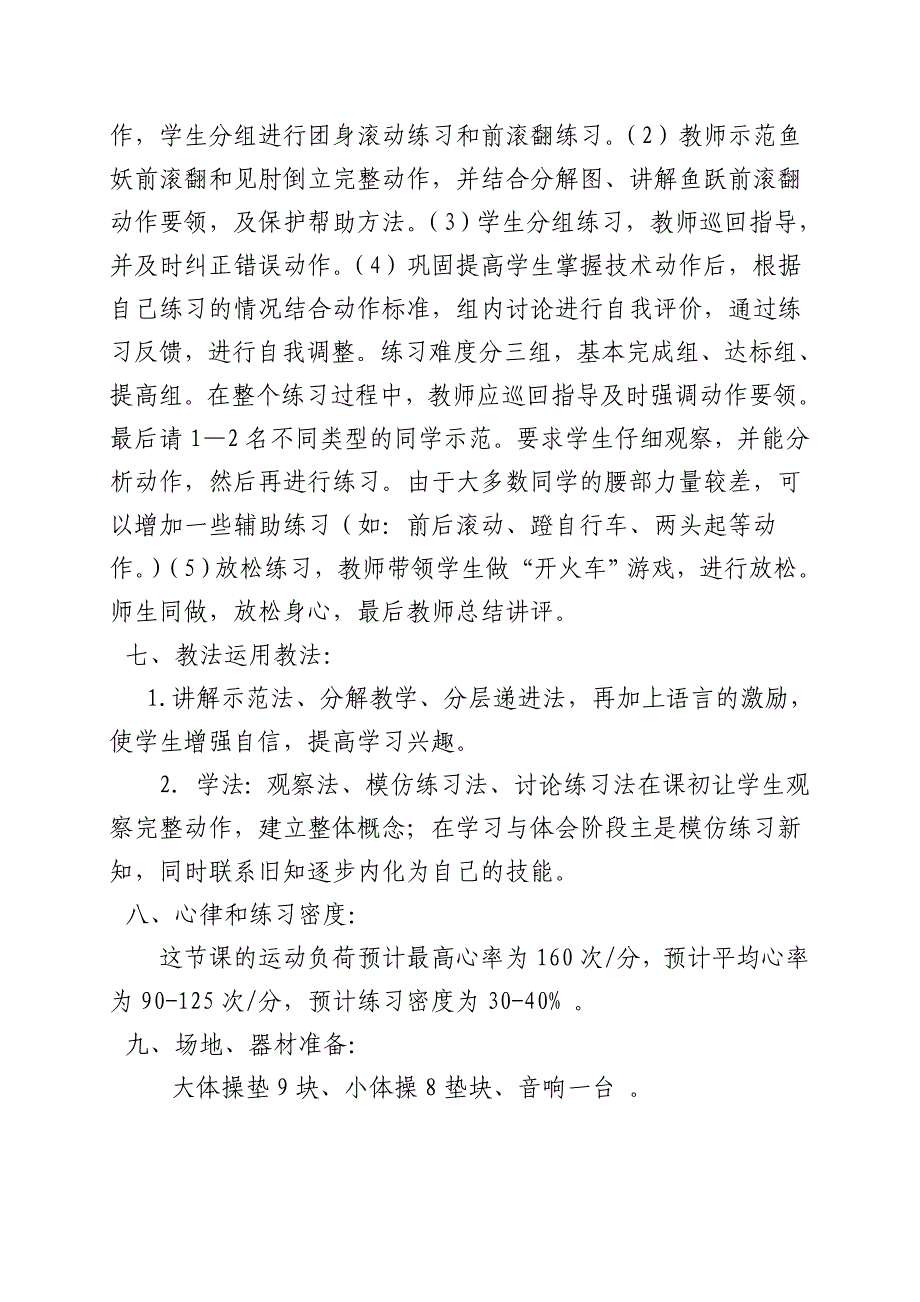 作，学生分组进行团身滚动练习和前滚翻练习。（2）教师示范鱼
妖前滚翻和见肘倒立完整动作，并结合分解图、讲解鱼跃前滚翻
动作要领，及保护帮助方法。（3）学生分组练习，教师巡回指导，
并及时纠正错误动作。（4）巩固提高学生掌握技术动作后，根据
自己练习的情况结合动作标准，组内讨论进行自我评价，通过练
习反馈，进行自我调整。练习难度分三组，基本完成组、达标组、
提高组。在整个练习过程中，教师应巡回指导及时强调动作要领。
最后请1—2名不同类型的同学示范。要求学生仔细观察，并能分
析动作，然后再进行练习。由于大多数同学的腰部力量较差，可
以增加一些辅助练习（如：前后滚动、蹬自行车、两头起等动
作。）（5）放松练习，教师带领学生做“开火车”游戏，进行放松。
师生同做，放松身心，最后教师总结讲评。
七、教法运用教法：
1.讲解示范法、分解教学、分层递进法，再加上语言的激励，
使学生增强自信，提高学习兴趣。
2. 学法：观察法、模仿练习法、讨论练习法在课初让学生观
察完整动作，建立整体概念；在学习与体会阶段主是模仿练习新
知，同时联系旧知逐步内化为自己的技能。
八、心律和练习密度：
这节课的运动负荷预计最高心率为160次/分，预计平均心率
为90-125次/分，预计练习密度为30-40% 。
九、场地、器材准备：
大体操垫9块、小体操8垫块、音响一台 。